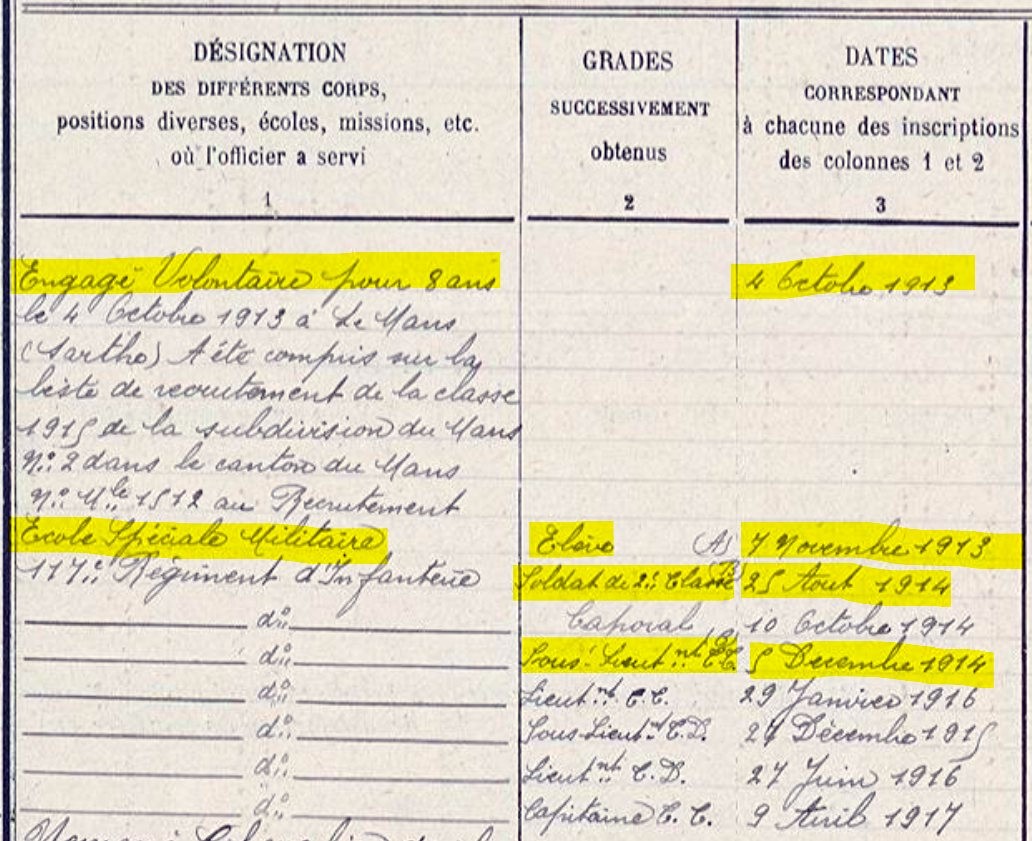 DÉSIGNATION
DES DIFFÉRENTS CORPS,
positions diverses, écoles, missions, etc.
où l'officier a servi
1
GRADES
SUCCESSIVEMENT
obtenus
2
DATES
CORRESPONDANT
à chacune des inscriptions
des colonnes 1 et 2
3
Engagé Volontaire pour 8 ans 4 Octobre 1913
le 4 Octobre 1913 à Le Mans
(Sarthe) A été compris sur la
liste de recrutement de la classe
1915 de la subdivision du Mans
N° 2 dans le canton du Mans
N° Mle 1512 au Recrutement
Ecole Spéciale Militaire Elève (A) 7 Novembre 1913
117e Régiment d'Infanterie Soldat de 2e Classe (B) 25 Aout 1914
do Caporal 10 Octobre 1914
do Sous-Lieutnt C.C. 5 Decembre 1914
do Lieutnt C.C. 29 Janvier 1916
do Sous-Lieutnt C.D. 24 Décembre 1915
do Lieutnt C.D. 27 Juin 1916
do Capitaine C.C. 9 Avril 1917